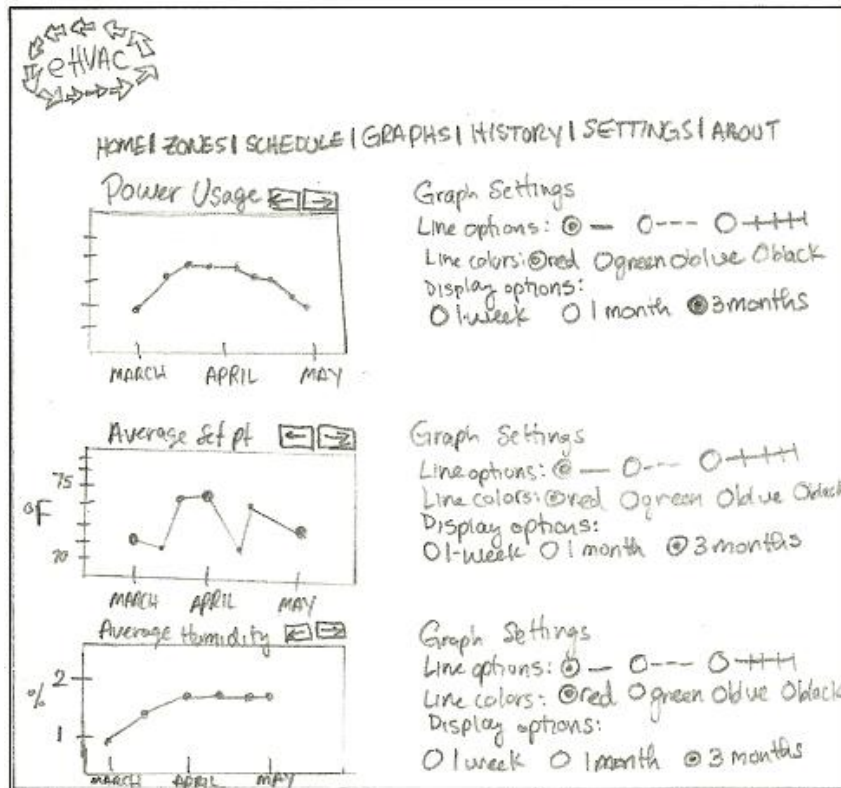 eHVAC
HOME | ZONES | SCHEDULE | GRAPHS | HISTORY | SETTINGS | ABOUT
Power Usage
MARCH APRIL MAY
Graph Settings
Line options:
Line colors: red green blue black
Display options:
1-week 1 month 3 months
Average Set pt
°F
75
70
MARCH APRIL MAY
Graph Settings
Line options:
Line colors: red green blue black
Display options:
1-week 1 month 3 months
Average Humidity
%
2
1
MARCH APRIL MAY
Graph Settings
Line options:
Line colors: red green blue black
Display options:
1 week 1 month 3 months